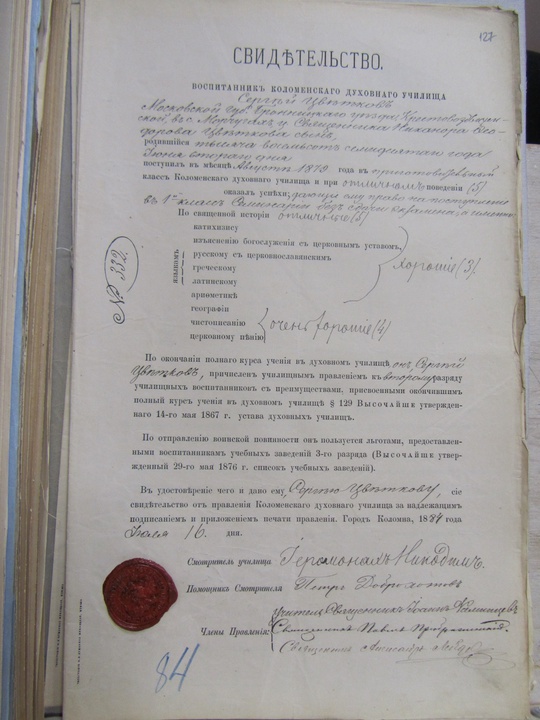 127
СВИДѢТЕЛЬСТВО.
ВОСПИТАННИКЪ КОЛОМЕНСКАГО ДУХОВНАГО УЧИЛИЩА
Сергѣй Цвѣтковъ
Московской Губ. Бронницкаго уѣзда,
Священника Никанора Ѳео-
дорова Цвѣткова сынъ,
родившійся тысяча восемьсотъ семьдесятаго года
Іюня втораго дня
поступилъ въ мѣсяцѣ Августѣ 1879 года въ приготовительный
классъ Коломенскаго духовнаго училища и при отличномъ поведеніи (5)
оказалъ успѣхи, дающіе ему право на поступленіе
въ 1й классъ Семинаріи безъ экзамена, а именно
По священной исторіи отличные (5)
катихизису
изъясненію богослуженія съ церковнымъ уставомъ,
языкамъ
русскому съ церковнославянскимъ
греческому
латинскому
ариѳметикѣ
хорошіе (3)
географіи
чистописанію
церковному пѣнію
очень хорошіе (4)
№ 332
По окончаніи полнаго курса ученія въ духовномъ училищѣ онъ, Сергѣй
Цвѣтковъ, причисленъ училищнымъ правленіемъ къ второму разряду
училищныхъ воспитанниковъ съ преимуществами, присвоенными окончившимъ
полный курсъ ученія въ духовномъ училищѣ § 129 Высочайше утвержден-
наго 14-го мая 1867 г. устава духовныхъ училищъ.
По отправленію воинской повинности онъ пользуется льготами, предоставлен-
ными воспитанникамъ учебныхъ заведеній 3-го разряда (Высочайше утвер-
жденный 29-го мая 1876 г. списокъ учебныхъ заведеній).
Въ удостовѣреніе чего и дано ему, Сергѣю Цвѣткову, сіе
свидѣтельство отъ правленія Коломенскаго духовнаго училища за надлежащимъ
подписаніемъ и приложеніемъ печати правленія. Городъ Коломна, 1887 года
Іюля 16 дня.
Смотритель училища Іеромонахъ Никодимъ.
Помощникъ Смотрителя Петръ Доброхотовъ
учитель Священникъ Іоаннъ
Члены Правленія: Священникъ Павелъ Преображенскій.
Священникъ
84